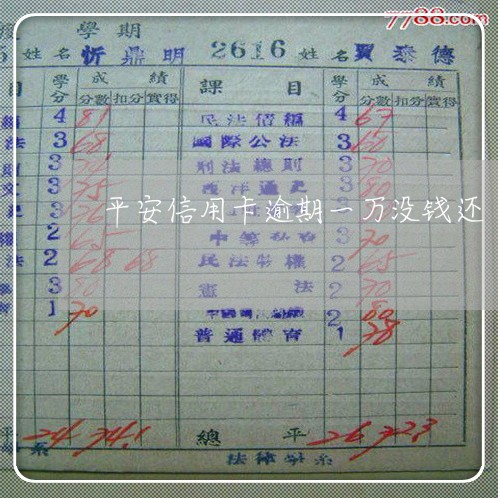 7788.com
學期
姓名 忻鼎明 2616 姓名 賈泰德
目 學分 成績 課目 學分 成績
分數 扣分 實得 分數 扣分 實得
4 81 民法債編 4 67
法 3 68 國際公法 3 60
3 刑法總則 3 70
3 75 西洋通史 3 80
平安信用卡逾期一万没钱还
3 76 3
權 2 65 3 70
法 2 68 68 民法物權 2 65
3 80 憲法 2 70
1 70 2 80
普通體育 1 78
平 24 74.1 總平 26 72.3
系 法律學系